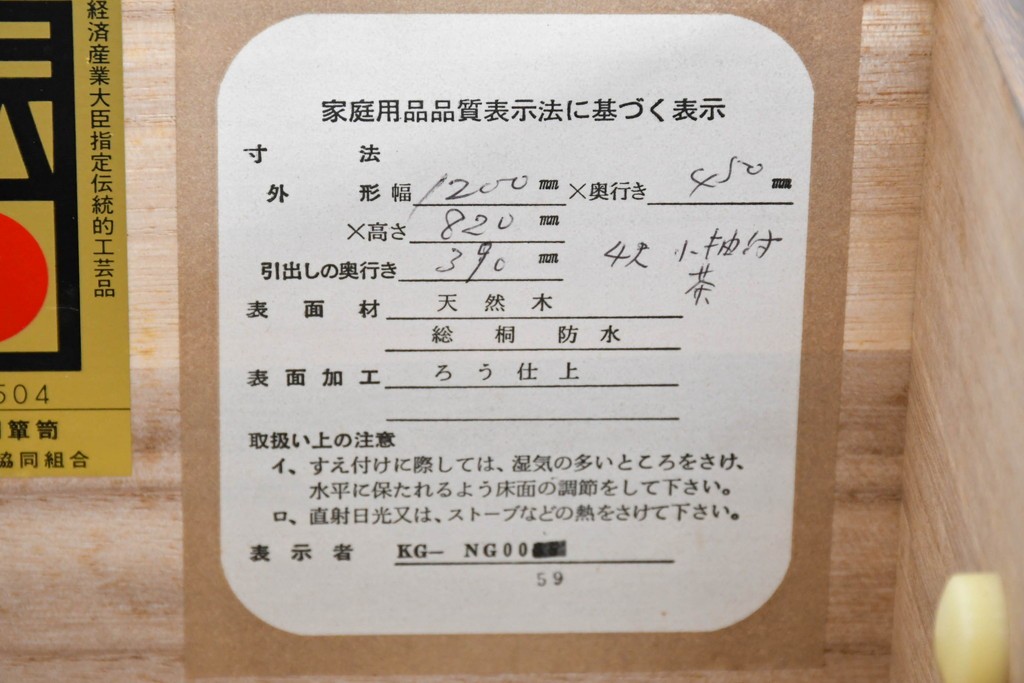 経済産業大臣指定伝統的工芸品
504
簞笥
協同組合
家庭用品品質表示法に基づく表示
寸法
外形 幅 1200 mm ×奥行き 450 mm
×高さ 820 mm
引出しの奥行き 390 mm 4尺 小抽付
茶
表面材 天然木
総桐防水
表面加工 ろう仕上
取扱い上の注意
イ、すえ付けに際しては、湿気の多いところをさけ、
水平に保たれるよう床面の調節をして下さい。
ロ、直射日光又は、ストーブなどの熱をさけて下さい。
表示者 KG— NG00
59